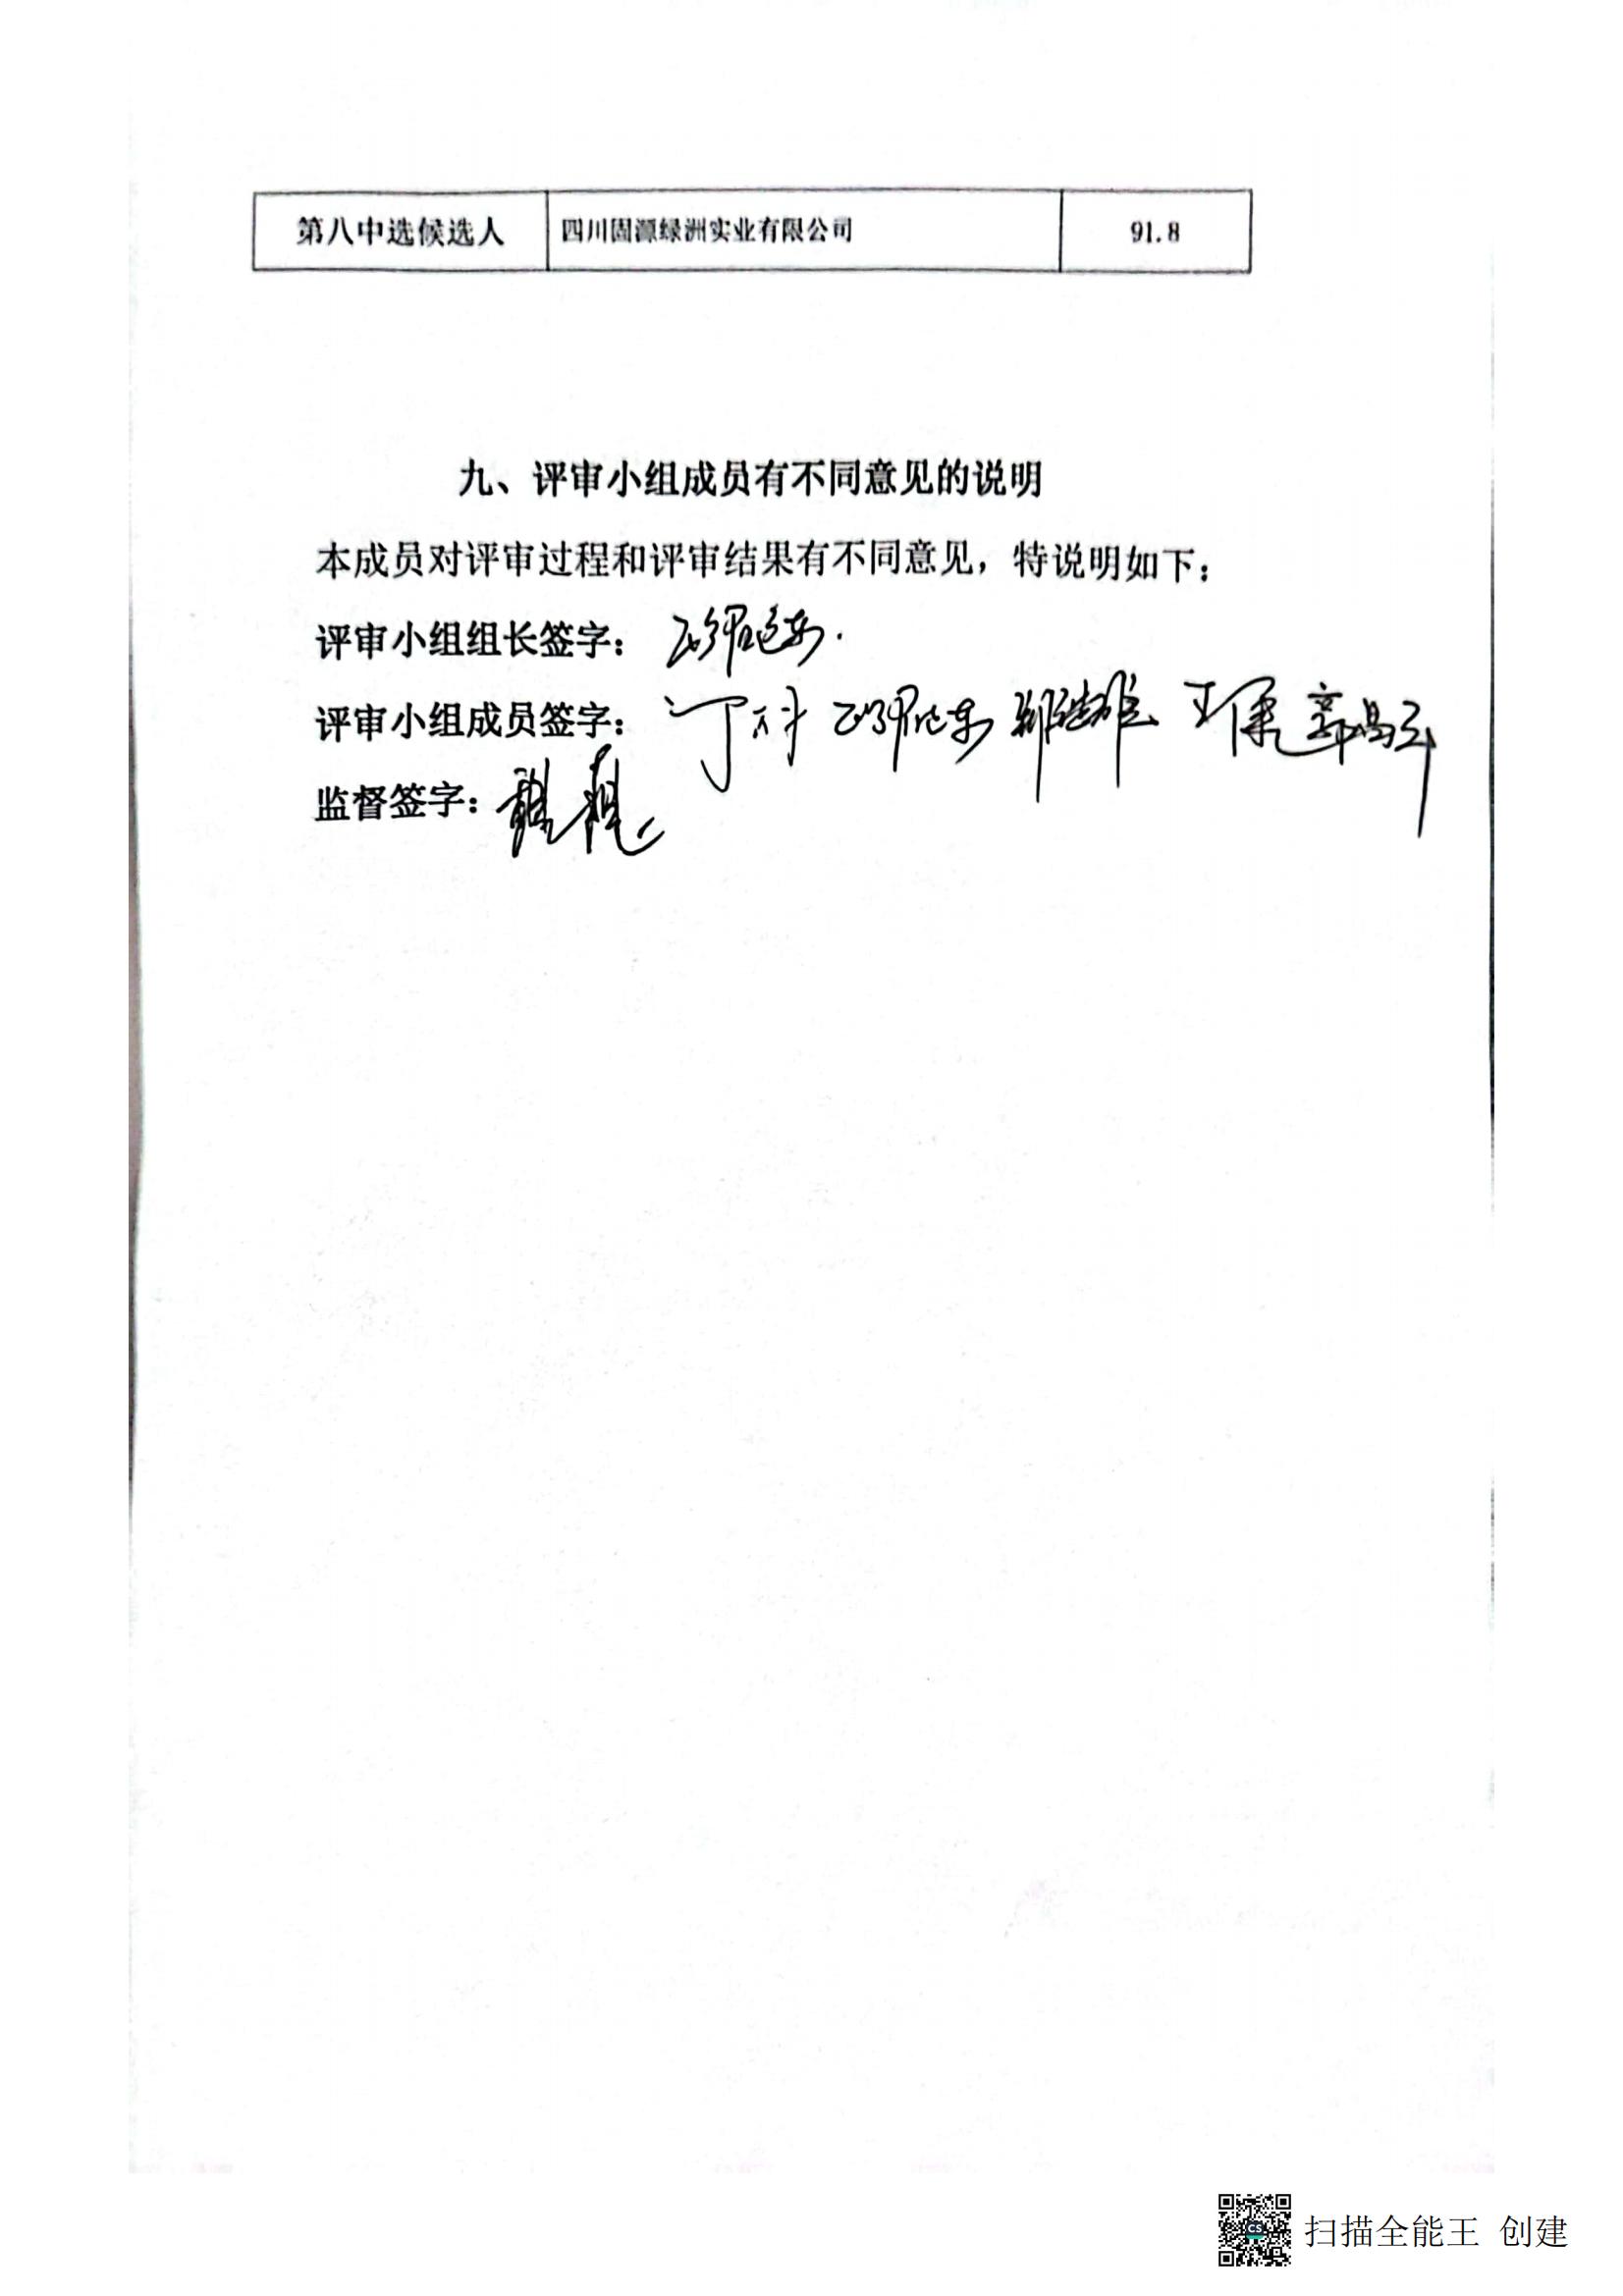 第八中选候选人 四川固源绿洲实业有限公司 91.8
九、评审小组成员有不同意见的说明
本成员对评审过程和评审结果有不同意见，特说明如下：
评审小组组长签字：
评审小组成员签字：
监督签字：
扫描全能王 创建